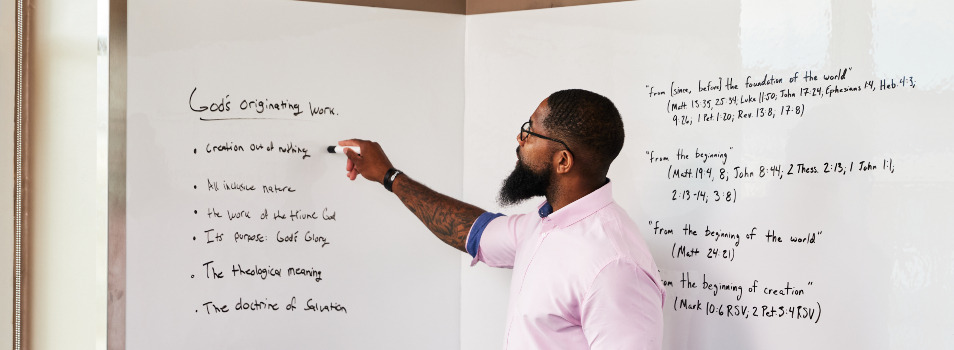 God's originating work.
• Creation out of nothing
• All inclusive nature
• the work of the triune God
• Its purpose: God's Glory
• The theological meaning
• The doctrine of Salvation
"from [since, before] the foundation of the world"
(Matt. 13:35, 25:34, Luke 11:50; John 17:24, Ephesians 1:4, Heb. 4:3;
9:26; 1 Pet. 1:20; Rev. 13:8; 17:8)
"from the beginning"
(Matt. 19:4, 8; John 8:44; 2 Thess. 2:13; 1 John 1:1;
2:13-14; 3:8)
"From the beginning of the world"
(Matt 24:21)
the beginning of creation"
(Mark 10:6 RSV; 2 Pet. 3:4 RSV)